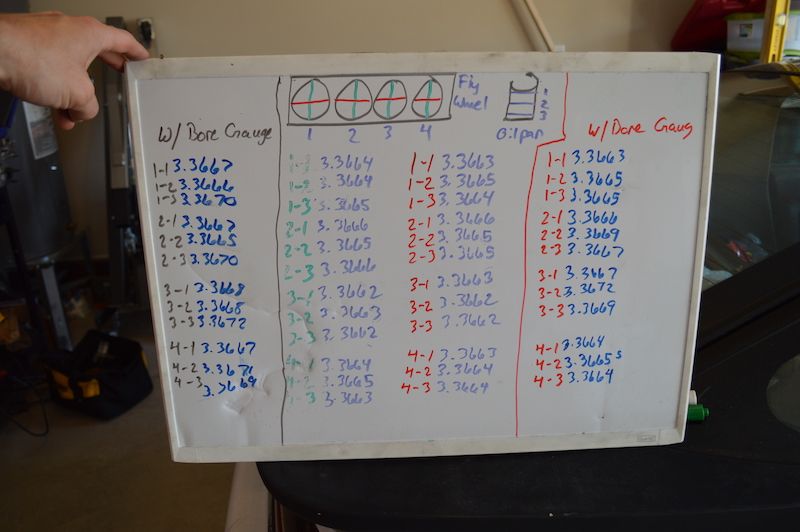 Fly
Wheel
1 2 3 4
1
2
3
Oilpan
W/ Bore Gauge
1-1 3.3667
1-2 3.3666
1-3 3.3670
2-1 3.3667
2-2 3.3665
2-3 3.3670
3-1 3.3668
3-2 3.3668
3-3 3.3672
4-1 3.3667
4-2 3.3671
4-3 3.3669
1-1 3.3664
1-2 3.3664
1-3 3.3665
2-1 3.3666
2-2 3.3665
2-3 3.3666
3-1 3.3662
3-2 3.3663
3-3 3.3662
4-1 3.3664
4-2 3.3665
4-3 3.3663
1-1 3.3663
1-2 3.3665
1-3 3.3664
2-1 3.3666
2-2 3.3665
2-3 3.3665
3-1 3.3663
3-2 3.3662
3-3 3.3662
4-1 3.3663
4-2 3.3664
4-3 3.3664
W/ Bore Gaug
1-1 3.3663
1-2 3.3665
1-3 3.3665
2-1 3.3666
2-2 3.3669
2-3 3.3667
3-1 3.3667
3-2 3.3672
3-3 3.3669
4-1 3.3664
4-2 3.3665 5
4-3 3.3664